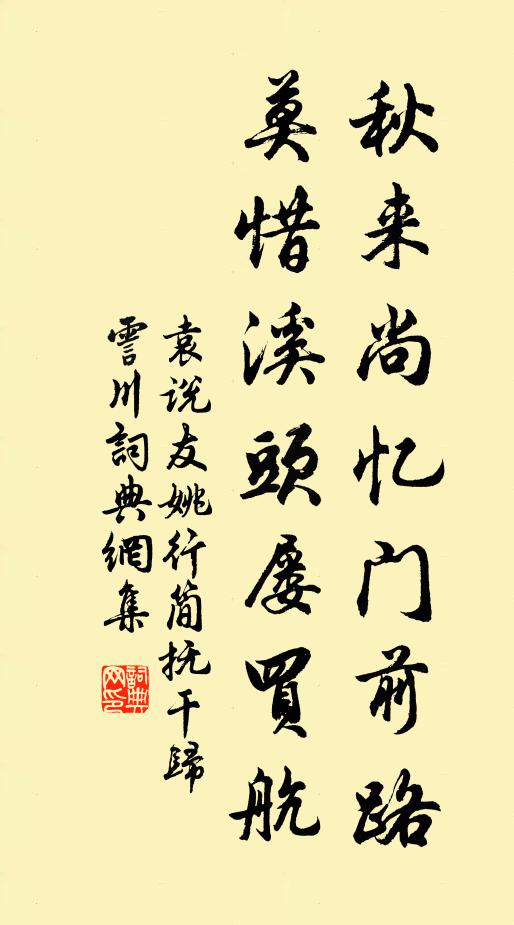 秋来尚忆门前路
莫惜溪頭屡買航
袁说友姚行简抚干歸
霅川詞典網集
詞典网印